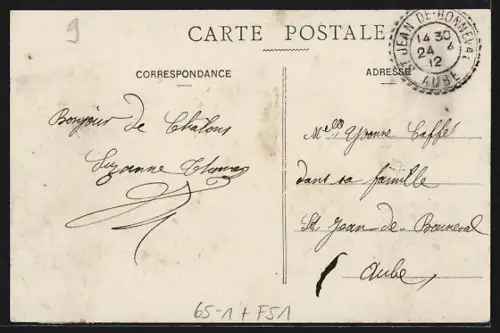 9
CARTE POSTALE
ST JEAN-DE-BONNEVAL
14 30
24 6
12
AUBE
CORRESPONDANCE
ADRESSE
Bonjour de Châlons
Suzanne Thomas
Melle Yvonne Caffé
dans sa famille
St. Jean-de-Bonneval
Aube
65-1 + FS1